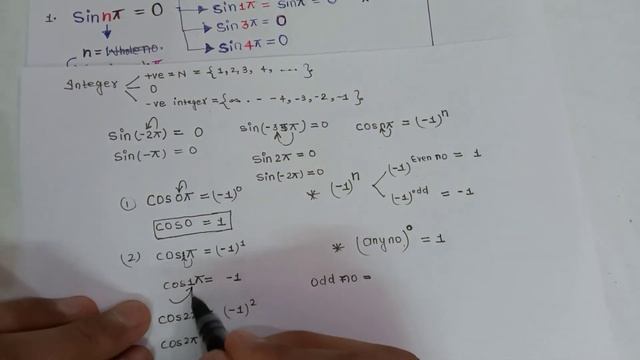 1. Sin nπ = 0
Sin 1π = Sin π = 0
Sin 3π = 0
Sin 4π = 0
n = Whole no.
Integer
+ve = N = {1, 2, 3, 4, ....}
0
-ve integer = {∞ . - - 4, -3, -2, -1}
Sin(-2π) = 0
Sin(-π) = 0
Sin(-35π) = 0
Sin 2π = 0
Sin(-2π) = 0
cos nπ = (-1)ⁿ
(1) COS 0π = (-1)⁰
COS 0 = 1
* (-1)ⁿ
(-1)^Even no = 1
(-1)^odd = -1
(2) cos 1π = (-1)¹
cos 1π = -1
* (any no)⁰ = 1
odd no =
COS 2 (-1)²
COS 2π